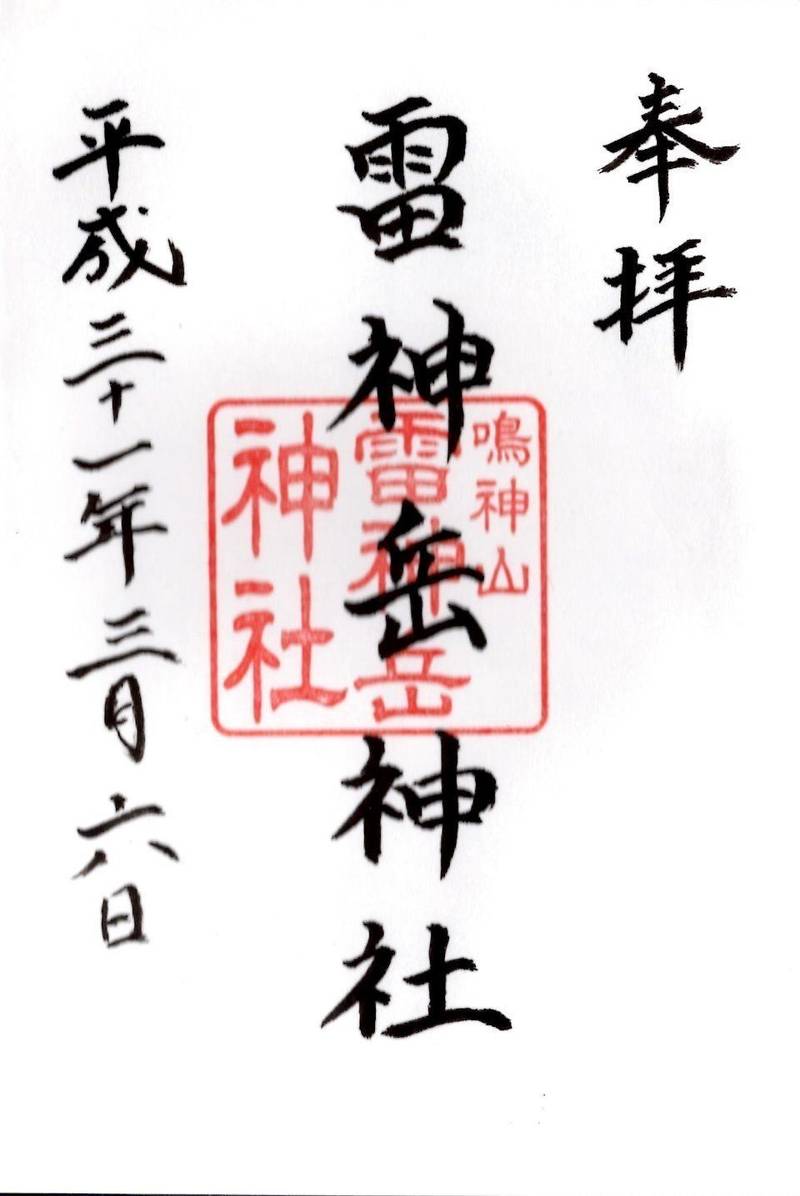 奉拝
雷神岳神社
鳴神山
雷神岳
神社
平成三十一年三月六日